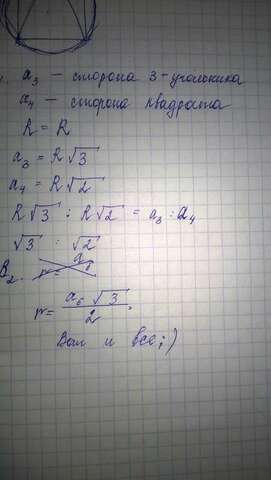 a₃ — сторона 3-уголника
a₄ — сторона квадрата
R = R
a₃ = R√3
a₄ = R√2
R√3 : R√2 = a₃ : a₄
√3 : √2
В₂.
r = a₆√3 / 2.
Вот и все ;)